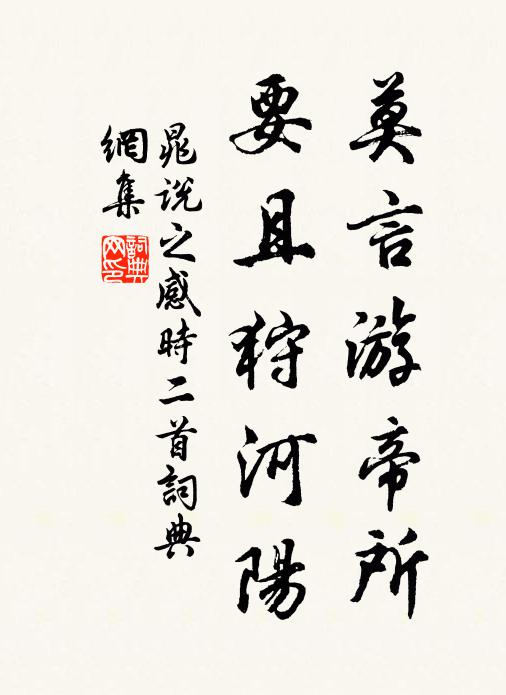 莫言游帝所
要且狩河陽
晁説之感時二首詞典
網集
詞典
网印